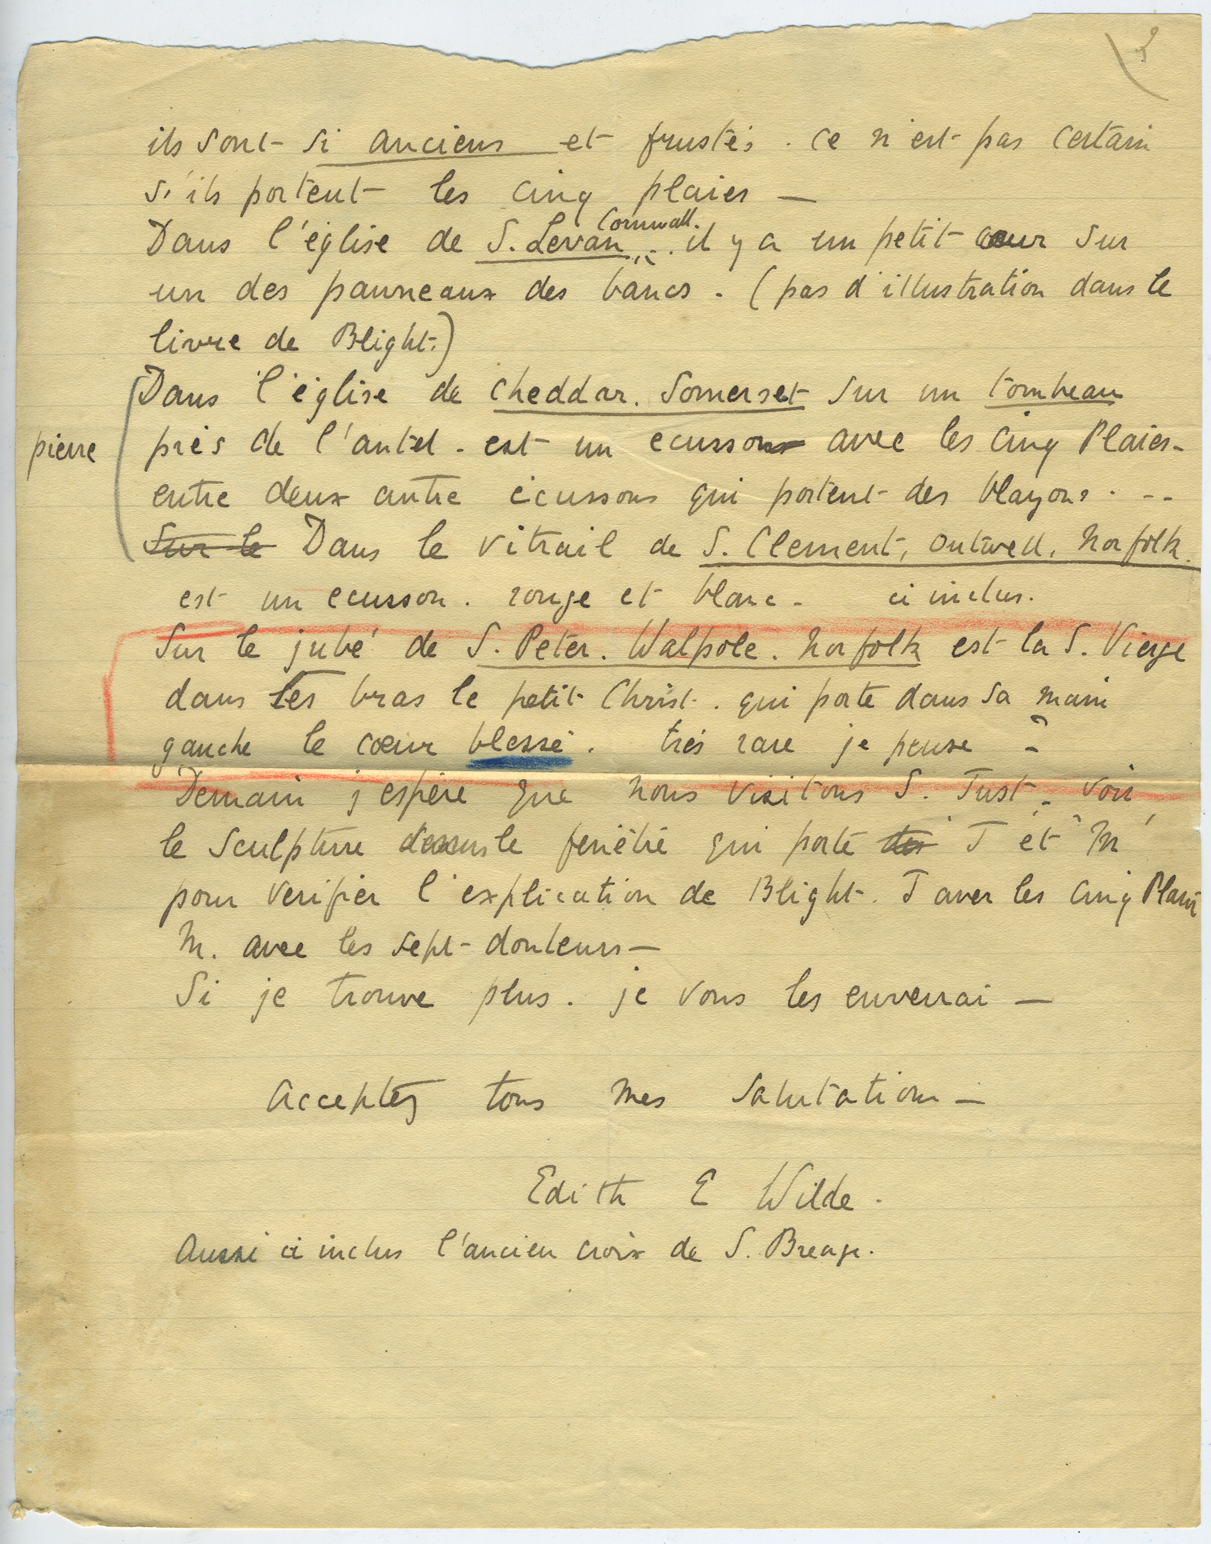 3
ils sont si anciens et frustés. ce n'est pas certain
s'ils portent les cinq plaies —
Cornwall.
Dans l'église de S. Levan . il y a un petit cœur sur
un des panneaux des bancs. (pas d'illustration dans le
livre de Blight.)
Dans l'église de Cheddar. Somerset sur un tombeau
pierre près de l'autel. est un ecusson avec les Cinq Plaies -
entre deux autre écussons qui portent des blayons. --
Sur le Dans le vitrail de S. Clement, Outwell, Norfolk.
est un ecusson. rouge et blanc - ci inclus.
Sur le jubé de S. Peter. Walpole. Norfolk est la S. Vierge
dans les bras le petit Christ. qui porte dans sa main
gauche le cœur blessé. très rare je pense -
Demain j'espère que nous visitons S. Just - voir
le sculpture dessus le fenêtre qui porte J et M
pour verifier l'explication de Blight. J avec les Cinq Plaies
M. avec les sept-douleurs —
Si je trouve plus. je vous les enverrai —
Acceptez tous mes Salutations —
Edith E Wilde.
Aussi ci inclus l'ancien croix de S. Breage.